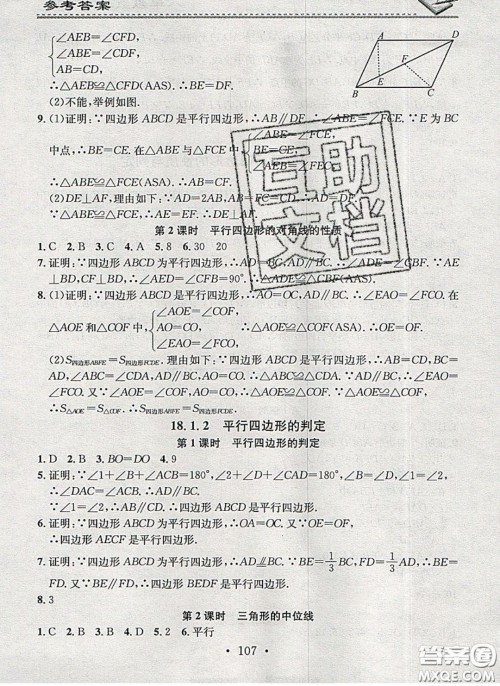 参考答案
∠AEB=∠CFD,
∠ABE=∠CDF,
AB=CD,
∴△ABE≌△CFD(AAS). ∴BE=DF.
(2)不能,举例如图.
A D
F
E
B C
9. (1)证明:∵四边形ABCD是平行四边形,∴AB∥DF. ∴∠ABE=∠FCE. ∵E为BC
中点,∴BE=CE. 在△ABE与△FCE中
∠ABE=∠FCE,
BE=CE,
∠AEB=∠FEC,
∴△ABE≌△FCE(ASA). ∴AB=CF.
(2)DE⊥AF,理由如下:∵AD=2AB,AB=CF=CD,
∵△ABE≌△FCE,∴AE=EF. ∴DE⊥AF.
第2课时 平行四边形的对角线的性质
1. C 2. B 3. C 4. A 5. 8 6. 30 20
7. 证明:∵四边形ABCD为平行四边形,∴AD=BC,AD∥BC. ∵AE
⊥BD,CF⊥BD,∴∠AED=∠CFB=90°. ∴△ADE≌△CBF
8. (1)证明:∵四边形ABCD是平行四边形,∴AO=OC,AD∥BC. ∴∠EAO=∠FCO. 在
△AOE和△COF中,
∠AOE=∠COF,
AO=CO,
∠EAO=∠FCO,
∴△AOE≌△COF(ASA). ∴OE=OF.
(2)S四边形ABFE=S四边形FCDE. 理由如下:∵四边形ABCD是平行四边形,∴AB=CD,BC=
AD,∠ABC=∠CDA,AD∥BC,AB∥CD. ∴△ABC≌△CDA. ∵△AOE≌△COF,
∴S△AOE=S△COF. ∴S四边形ABFE=S四边形FCDE.
18.1.2 平行四边形的判定
第1课时 平行四边形的判定
1. D 2. B 3. BO=DO 4. 9
5. 证明:∵∠1+∠B+∠ACB=180°,∠2+∠D+∠CAD=180°,∠B=∠D,∠1=∠2,
∴∠DAC=∠ACB. ∴AD∥BC.
∵∠1=∠2,∴AB∥CD. ∴四边形ABCD是平行四边形.
6. 证明:∵四边形ABCD为平行四边形,∴OA=OC. 又∵OE=OF,
∴四边形AECF是平行四边形.
7. 证明:∵四边形ABCD是平行四边形,∴AD∥BC. ∵BE=1/3BC,FD=1/3AD,∴BE=
FD. 又∵BE∥FD,∴四边形BEDF是平行四边形.
8. 3
第2课时 三角形的中位线
1. C 2. B 3. A 4. D 5. 2 6. 平行
· 107 ·
互助
文档
答案圈
MXQE.COM